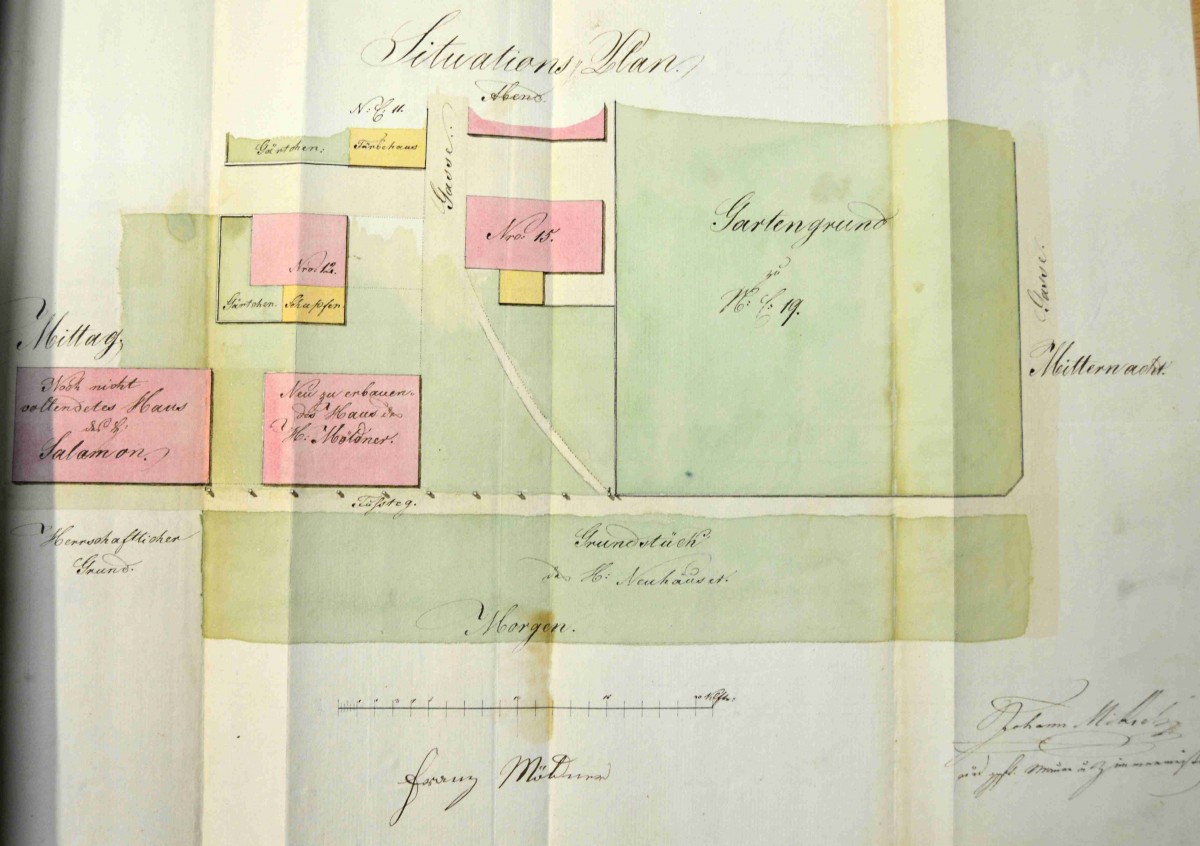 Situations Plan.
Abend.
N: C: 11.
Gärtchen:
Färbehaus
Gasse.
Nro: 15.
Gartengrund
zu
N: C: 19.
Gasse.
Nro: 12.
Gärtchen.
Schupfen
Mittag.
Mitternacht.
Noch nicht
vollendetes Haus
des H:
Salamon.
Neu zu erbauen-
des Haus des
H: Möldner.
Fußsteg.
Herrschaftlicher
Grund.
Grundstück
des H: Neuhäuser.
Morgen.
Franz Möldner
Johann